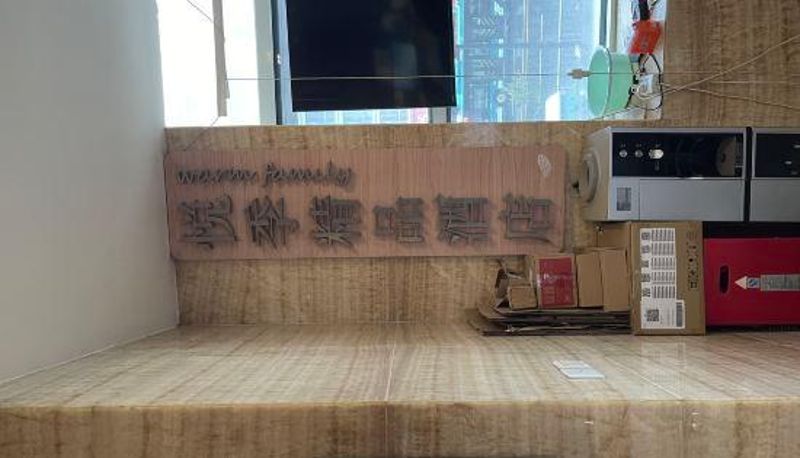 warm family
悦季精品酒店